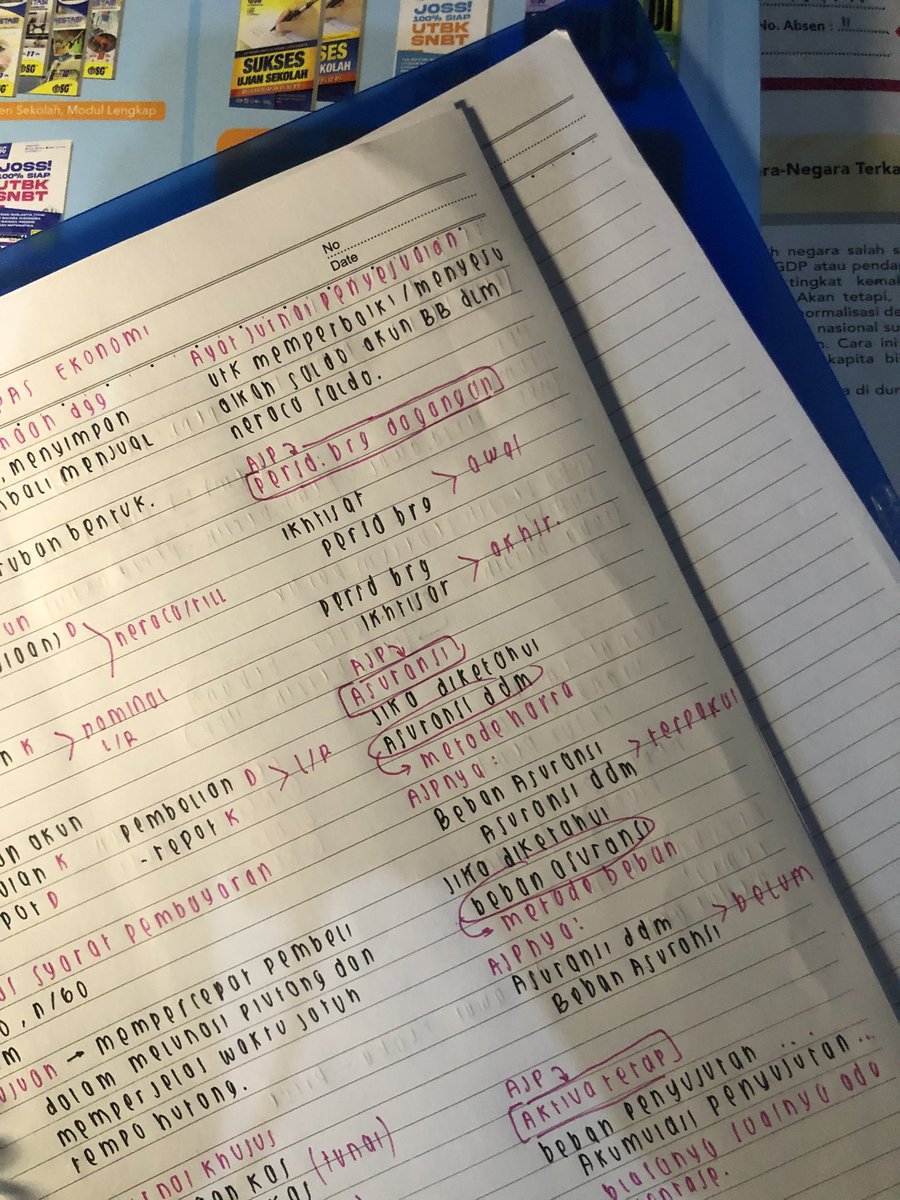 STASI
JOSS!
100% SIAP
UTBK
SNBT
SUKSES
UJIAN SEKOLAH
SES
SG
en Sekolah, Modul Lengkap
JOSS!
100% SIAP
UTBK
SNBT
No. Absen : 11
ara-Negara Terka
h negara salah s
GDP atau pendap
tingkat kemak
Akan tetapi,
normalisasi de
nasional su
n. Cara ini
kapita bis
a di dun
No
Date
PAS EKONOMI
dgg
, menyimpan
mbali menjual
ruban bentuk.
un
D
neraca/riil
n K
nominal
L/R
n akun
K
D
pembelian D > L/R
- repot K
syarat pembayaran
, n/60
→ mempercepat pembeli
dalam melunasi piutang dan
memperjelas waktu jatuh
tempo hutang.
khusus
kas (tunai)
Ayat jurnal penyesuaian
utk memperbaiki/menyesu
aikan saldo akun BB dlm
neraca saldo.
AJP
persd. brg dagangan
ikhtisar
persd brg > awal
persd brg
ikhtisar > akhir.
AJP
Asuransi
jika diketahui
Asuransi ddm
metode harta
AJPnya:
Beban Asuransi
Asuransi ddm > terpakai
jika diketahui
beban asuransi
metode beban
AJPnya:
Asuransi ddm
Beban Asuransi > belum
AJP
Aktiva tetap
beban penyujutan ...
Akumulasi penyujutan ...
biasanya soalnya ada